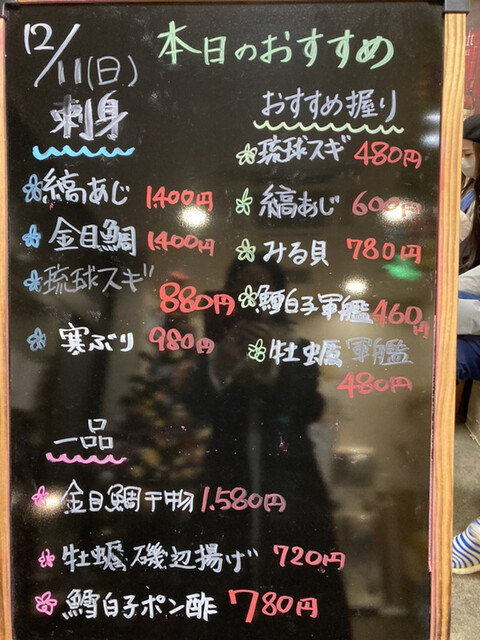 12/11(日)
本日のおすすめ
刺身
縞あじ 1400円
金目鯛 1400円
琉球スギ
880円
寒ぶり 980円
おすすめ握り
琉球スギ 480円
縞あじ 600円
みる貝 780円
鱈白子軍艦 460円
牡蠣軍艦
480円
一品
金目鯛干物 1.580円
牡蠣磯辺揚げ 720円
鱈白子ポン酢 780円